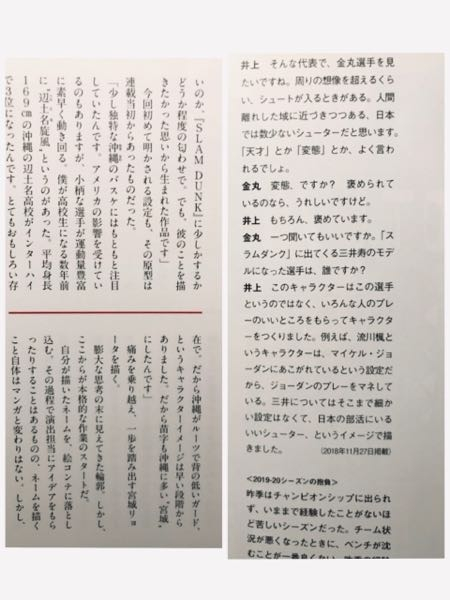 いのか、『SLAM DUNK』に少しかするか
どうか程度の匂わせで。でも、彼のことを描
きたかった思いから生まれた作品です」
今回初めて明かされる設定も、その原型は
連載当初からあったものだった。
「少し独特な沖縄のバスケにはもともと注目
していたんです。アメリカの影響を受けてい
るのもありますが、小柄な選手が運動量豊富
に素早く動き回る。僕が高校生になる数年前
に〝辺土名旋風〟というのがあった。平均身長
169㎝の沖縄の辺土名高校がインターハイ
で3位になったんです。とてもおもしろい存
在で。だから沖縄がルーツで背の低いガード、
というキャラクターイメージは早い段階から
ありました。だから苗字も沖縄に多い〝宮城〟
にしたんです」
痛みを乗り越え、一歩を踏み出す宮城リョ
ータを描く。
膨大な思考の末に見えてきた輪郭。しかし、
ここからが本格的な作業のスタートだ。
自分が描いたネームを、絵コンテに落とし
込む。その過程で演出担当にアイデアをもら
ったりすることはあるものの、ネームを描く
こと自体はマンガと変わりはない。しかし、
井上 そんな代表で、金丸選手を見
たいですね。周りの想像を超えるくら
い、シュートが入るときがある。人間
離れした域に近づきつつある、日本
では数少ないシューターだと思います。
「天才」とか「変態」とか、よく言わ
れるでしょ。
金丸 変態、ですか？ 褒められて
いるのなら、うれしいですけど。
井上 もちろん、褒めています。
金丸 一つ聞いてもいいですか。「ス
ラムダンク」に出てくる三井寿のモデ
ルになった選手は、誰ですか？
井上 このキャラクターはこの選手
というのではなく、いろんな人のプレ
ーのいいところをもらってキャラクタ
ーをつくりました。例えば、流川楓と
いうキャラクターは、マイケル・ジョー
ダンにあこがれているという設定だ
から、ジョーダンのプレーをマネして
いる。三井についてはそこまで細か
い設定はなくて、日本の部活にいる
いいシューター、というイメージで描
きました。 （2018年11月27日掲載）
＜2019-20シーズンの抱負＞
昨季はチャンピオンシップに出られ
ず、いままで経験したことがないほ
ど苦しいシーズンだった。チーム状
況が悪くなったときに、ベンチが沈
むことが一番良くない。